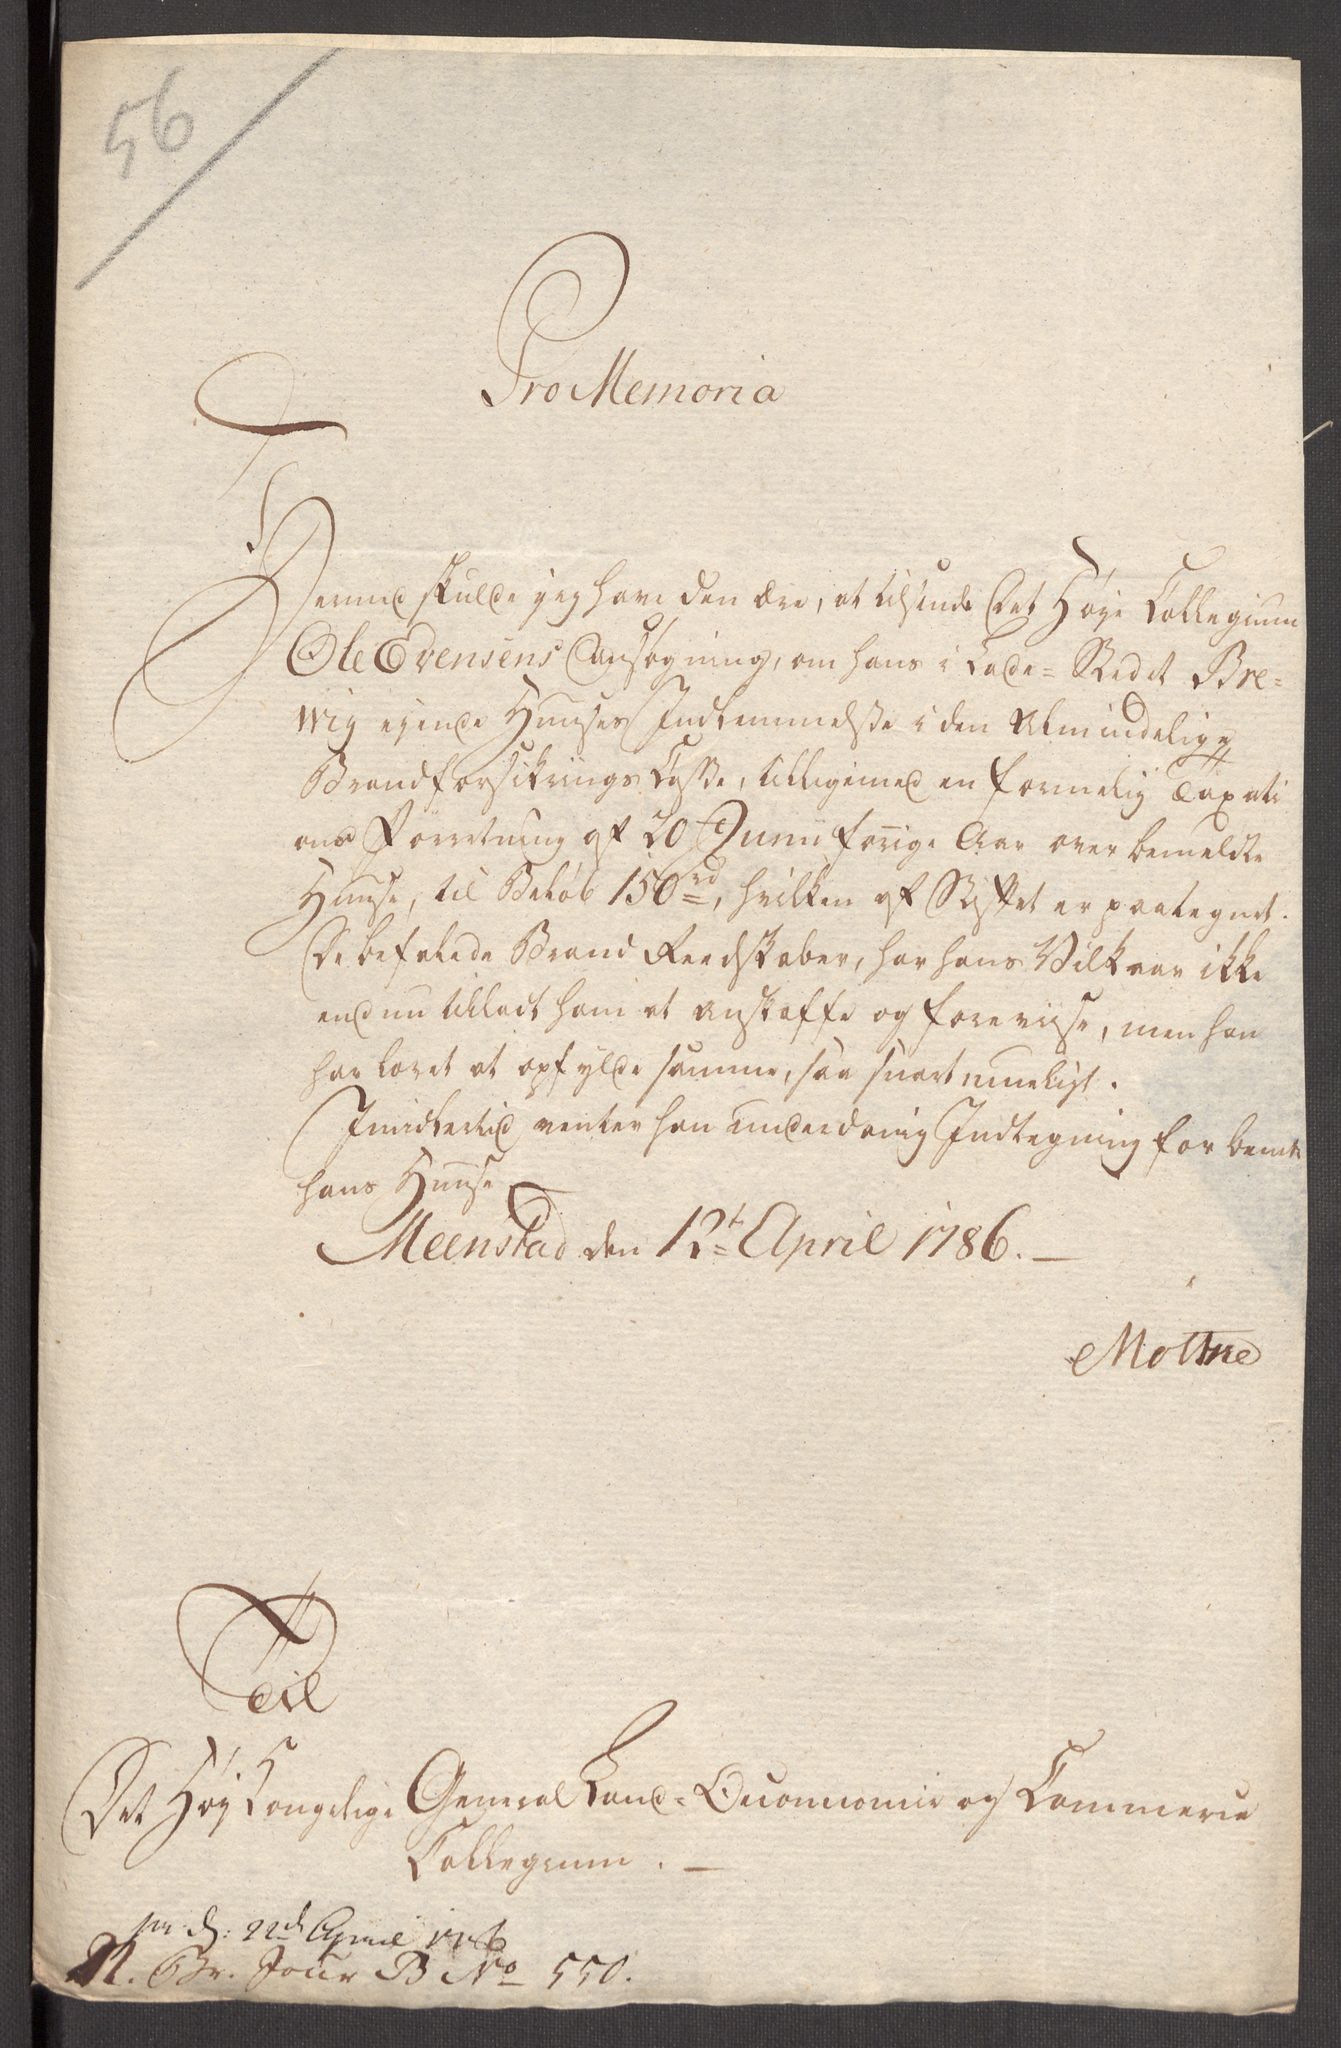 56
Pro Memoria
Hermed skulde jeg have den Ære, at tilsende Det Høye Collegium
Ole Evensens Ansøgning, om hans i Lade-Stedet Bre-
wig eyende Huuses Indlemmelse i den Almindelige
Brandforsikrings Casse, tilligemed en formelig Taxati
ons Forretning af 20 Junii forige Aar over bemeldte
Huuse, til Beløb 150 rd, hvilken af Stiftet er paategnet.
De befalede Brand Reedskaber, har hans Vilkaar ikke
end nu tilladt ham at anskaffe og forevise, men han
har lovet at opfylde samme, saa snart mueligt.
Imidlertid venter han underdanig Indtegning for bemte
hans Huuse
Meenstad den 12t April 1786.
Moltke
Til
Det Høy Kongelige General Land-Oeconomie og Commerce
Collegium.
pr. d: 22d April 1786
N. Br. Jour B No 550.